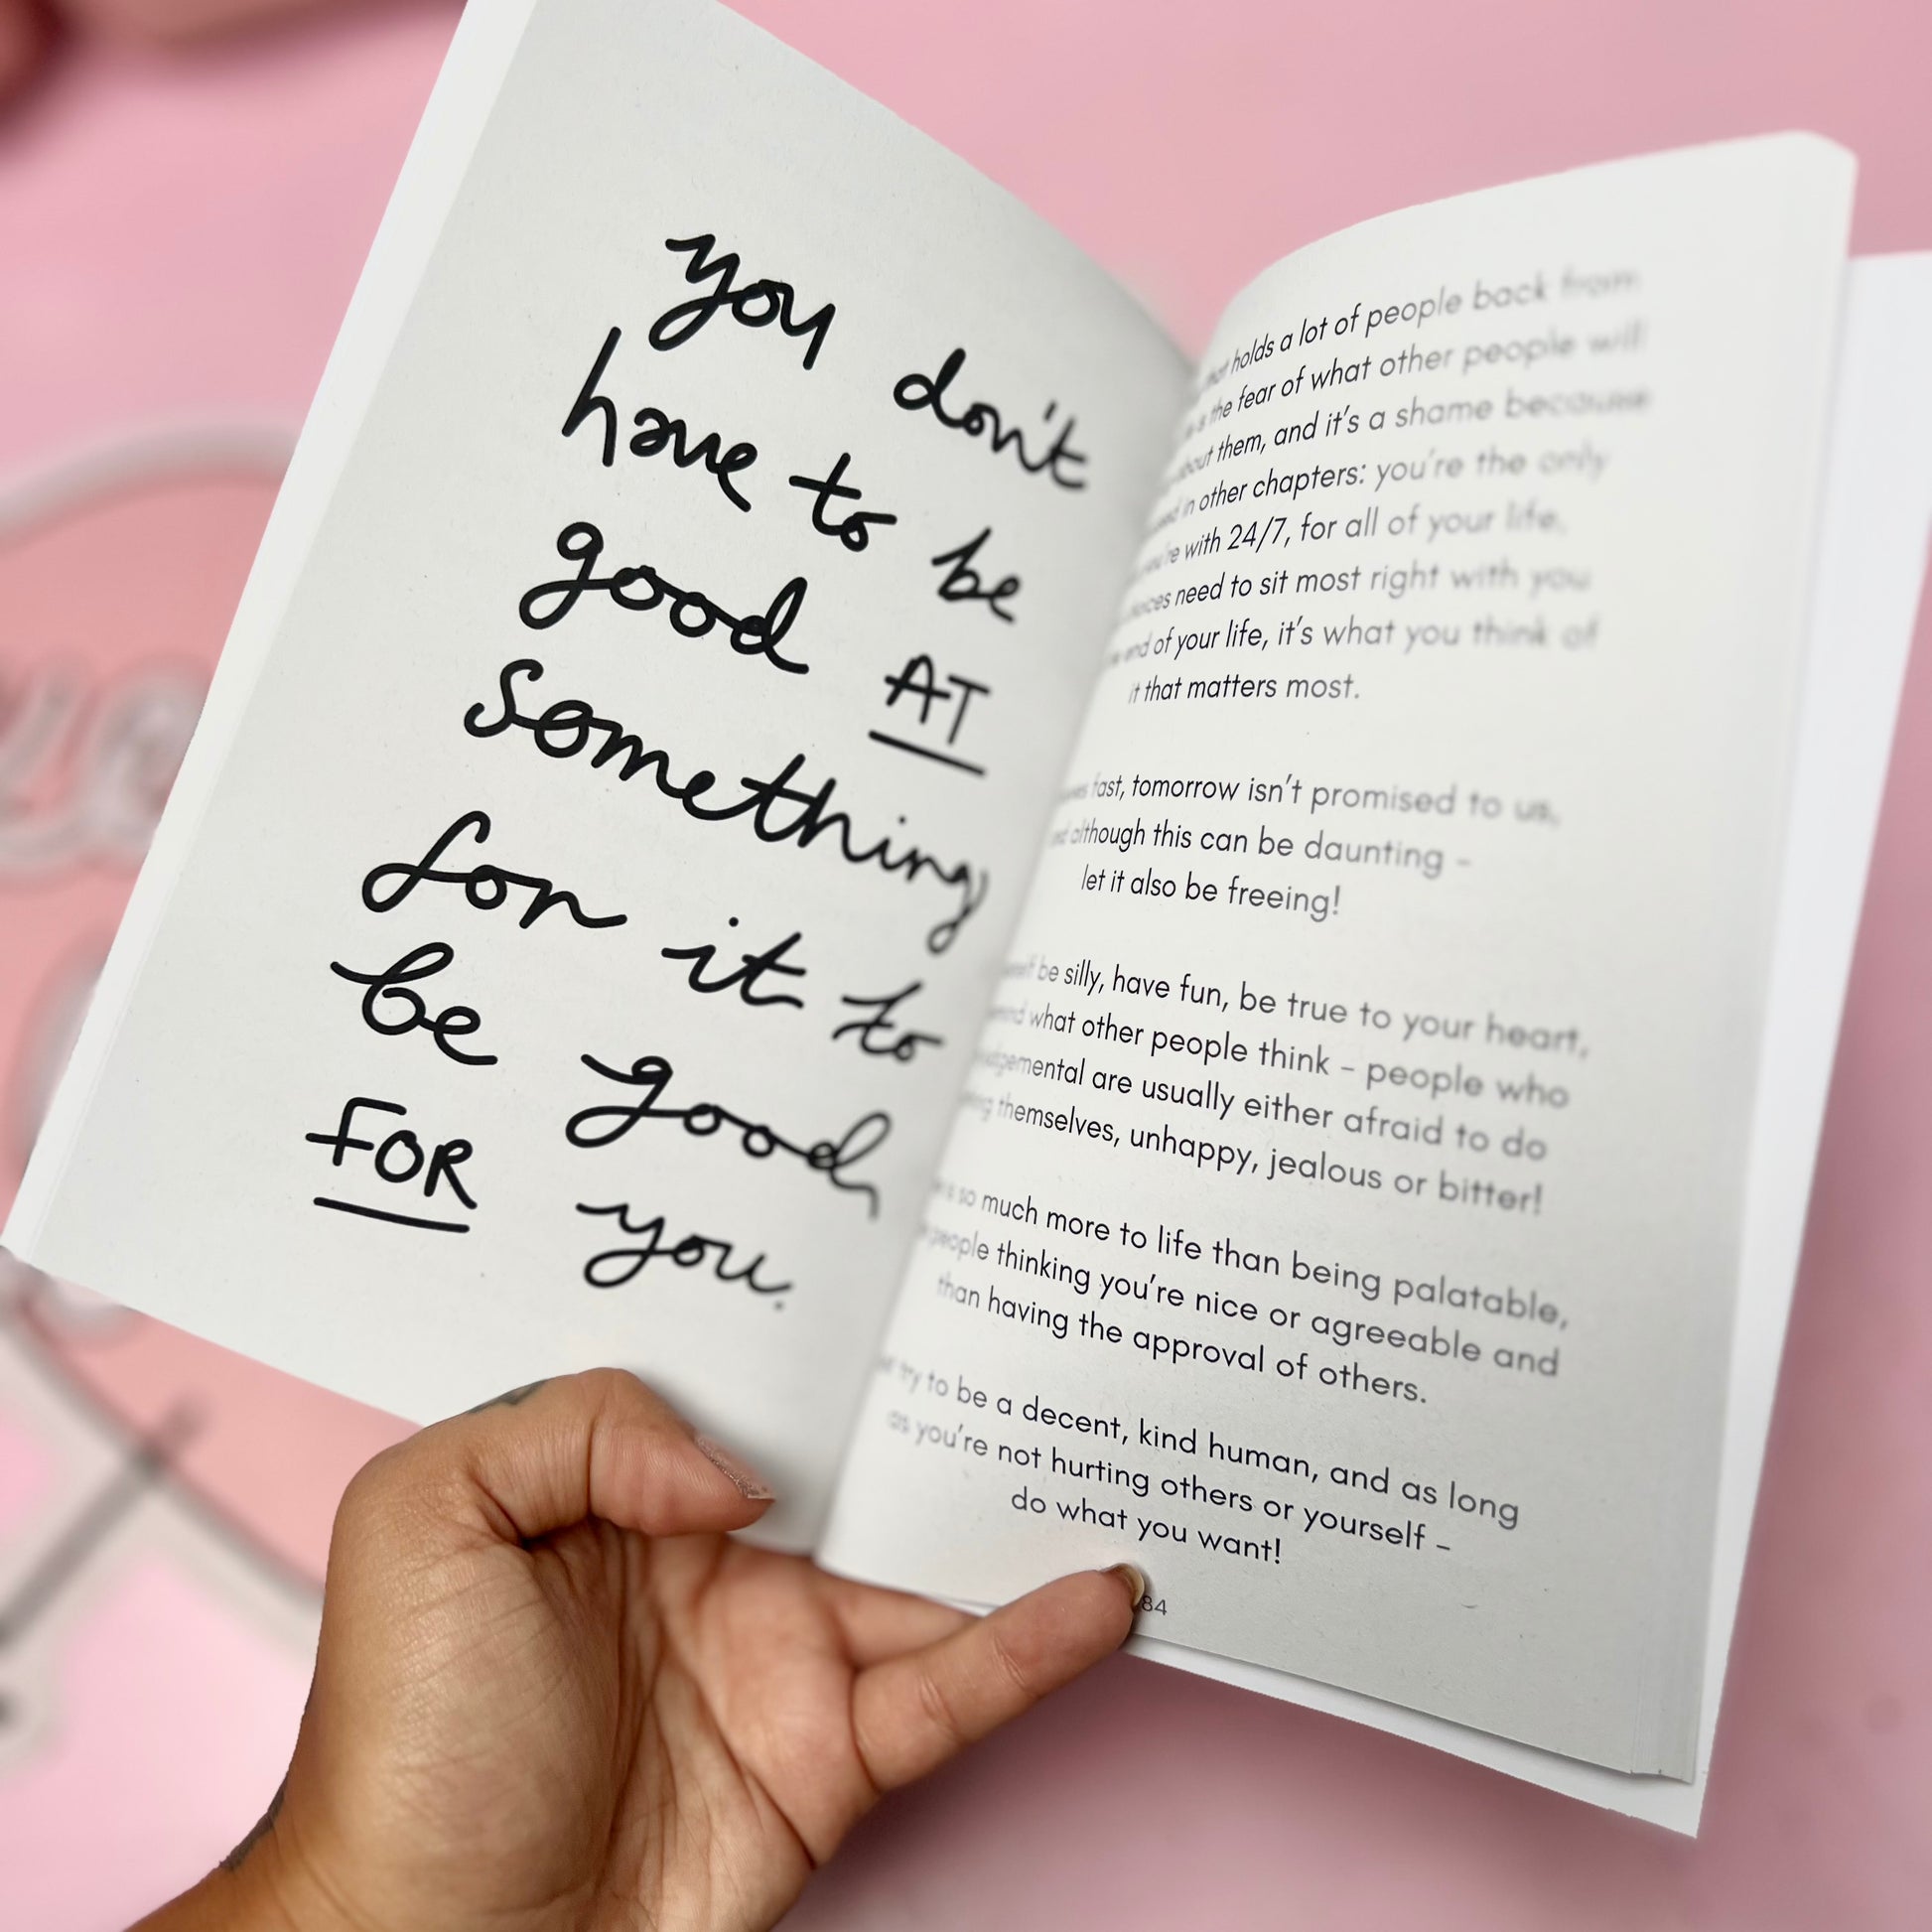 you don't
have to be
good AT
something
for it to
be good
FOR you.
that holds a lot of people back from
is the fear of what other people will
about them, and it's a shame because
in other chapters: you're the only
you're with 24/7, for all of your life,
need to sit most right with you
end of your life, it's what you think of
it that matters most.
fast, tomorrow isn't promised to us,
although this can be daunting –
let it also be freeing!
be silly, have fun, be true to your heart,
what other people think – people who
are usually either afraid to do
themselves, unhappy, jealous or bitter!
so much more to life than being palatable,
people thinking you're nice or agreeable and
than having the approval of others.
try to be a decent, kind human, and as long
as you're not hurting others or yourself –
do what you want!
84